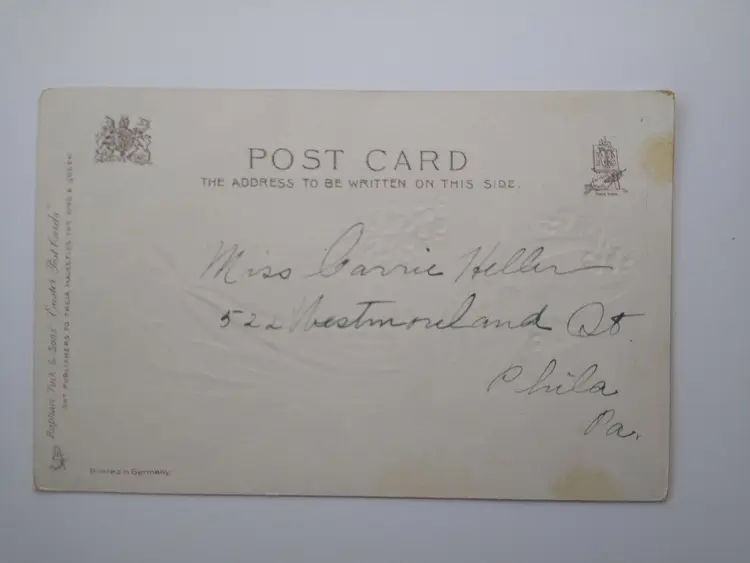 POST CARD
THE ADDRESS TO BE WRITTEN ON THIS SIDE.
Miss Carrie Heller
522 Westmoreland St.
Phila
Pa.
Raphael Tuck & Sons' "Easter" Post Cards"
ART PUBLISHERS TO THEIR MAJESTIES THE KING & QUEEN
Printed in Germany.